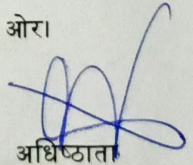 ओर।
अधिष्ठाता